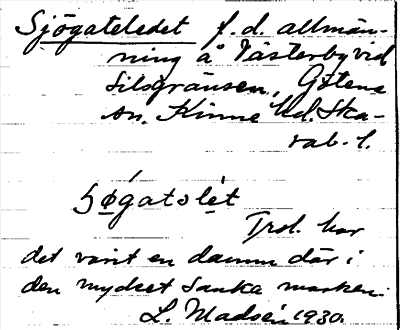 Sjögateledet f. d. allmän-
ning å Västerby vid
silsgränsen, Götene
sn. Kinne Hd. Ska-
rab. l.
sø̀gatslét
Trol. har
det varit en damm där i
den mycket sanka marken.
L. Madsén 1930.